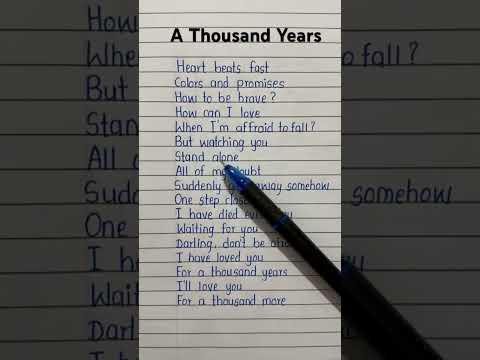 A Thousand Years
Heart beats fast
Colors and promises
How to be brave?
How can I love
When I'm affraid to fall?
But watching you
Stand alone
All of my doubt
Suddenly away somehow
One step close
I have died ev
Waiting for you
Darling, don't be
I have loved you
For a thousand years
I'll love you
For a thousand more
How
When
But
Stan
All
Sudd
One
I h
Wait
Darl
I ha
to fall?
somehow